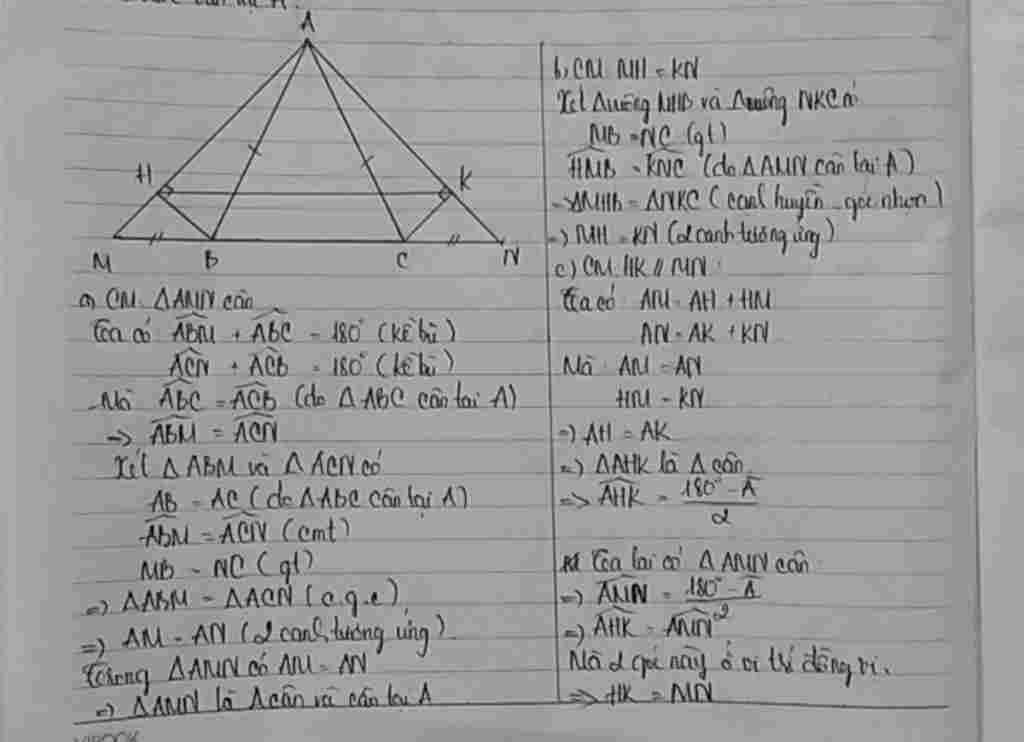 A
H
K
M
B
C
N
a) CM. ΔAMN cân
Ta có ABM + ABC = 180° (kề bù)
ACN + ACB = 180° (kề bù)
Mà ABC = ACB (do ΔABC cân tại A)
=> ABM = ACN
Xét ΔABM và ΔACN có
AB = AC (do ΔABC cân tại A)
ABM = ACN (cmt)
MB = NC (gt)
=> ΔABM = ΔACN (c.g.c)
=> AM = AN (2 cạnh tương ứng)
Trong ΔAMN có AM = AN
=> ΔAMN là Δ cân và cân tại A
b) CM. MH = KN
Xét Δ vuông MHB và Δ vuông NKC có
MB = NC (gt)
HMB = KNC (do ΔAMN cân tại A)
=> ΔMHB = ΔNKC (cạnh huyền - góc nhọn)
=> MH = KN (2 cạnh tương ứng)
c) CM. HK // MN
Ta có AM = AH + HM
AN = AK + KN
Mà AM = AN
HM = KN
=> AH = AK
=> ΔAHK là Δ cân
=> AHK = (180° - A)/2
Ta lại có ΔAMN cân
=> AMN = (180° - A)/2
=> AHK = AMN
Mà 2 góc này ở vị trí đồng vị.
=> HK = MN